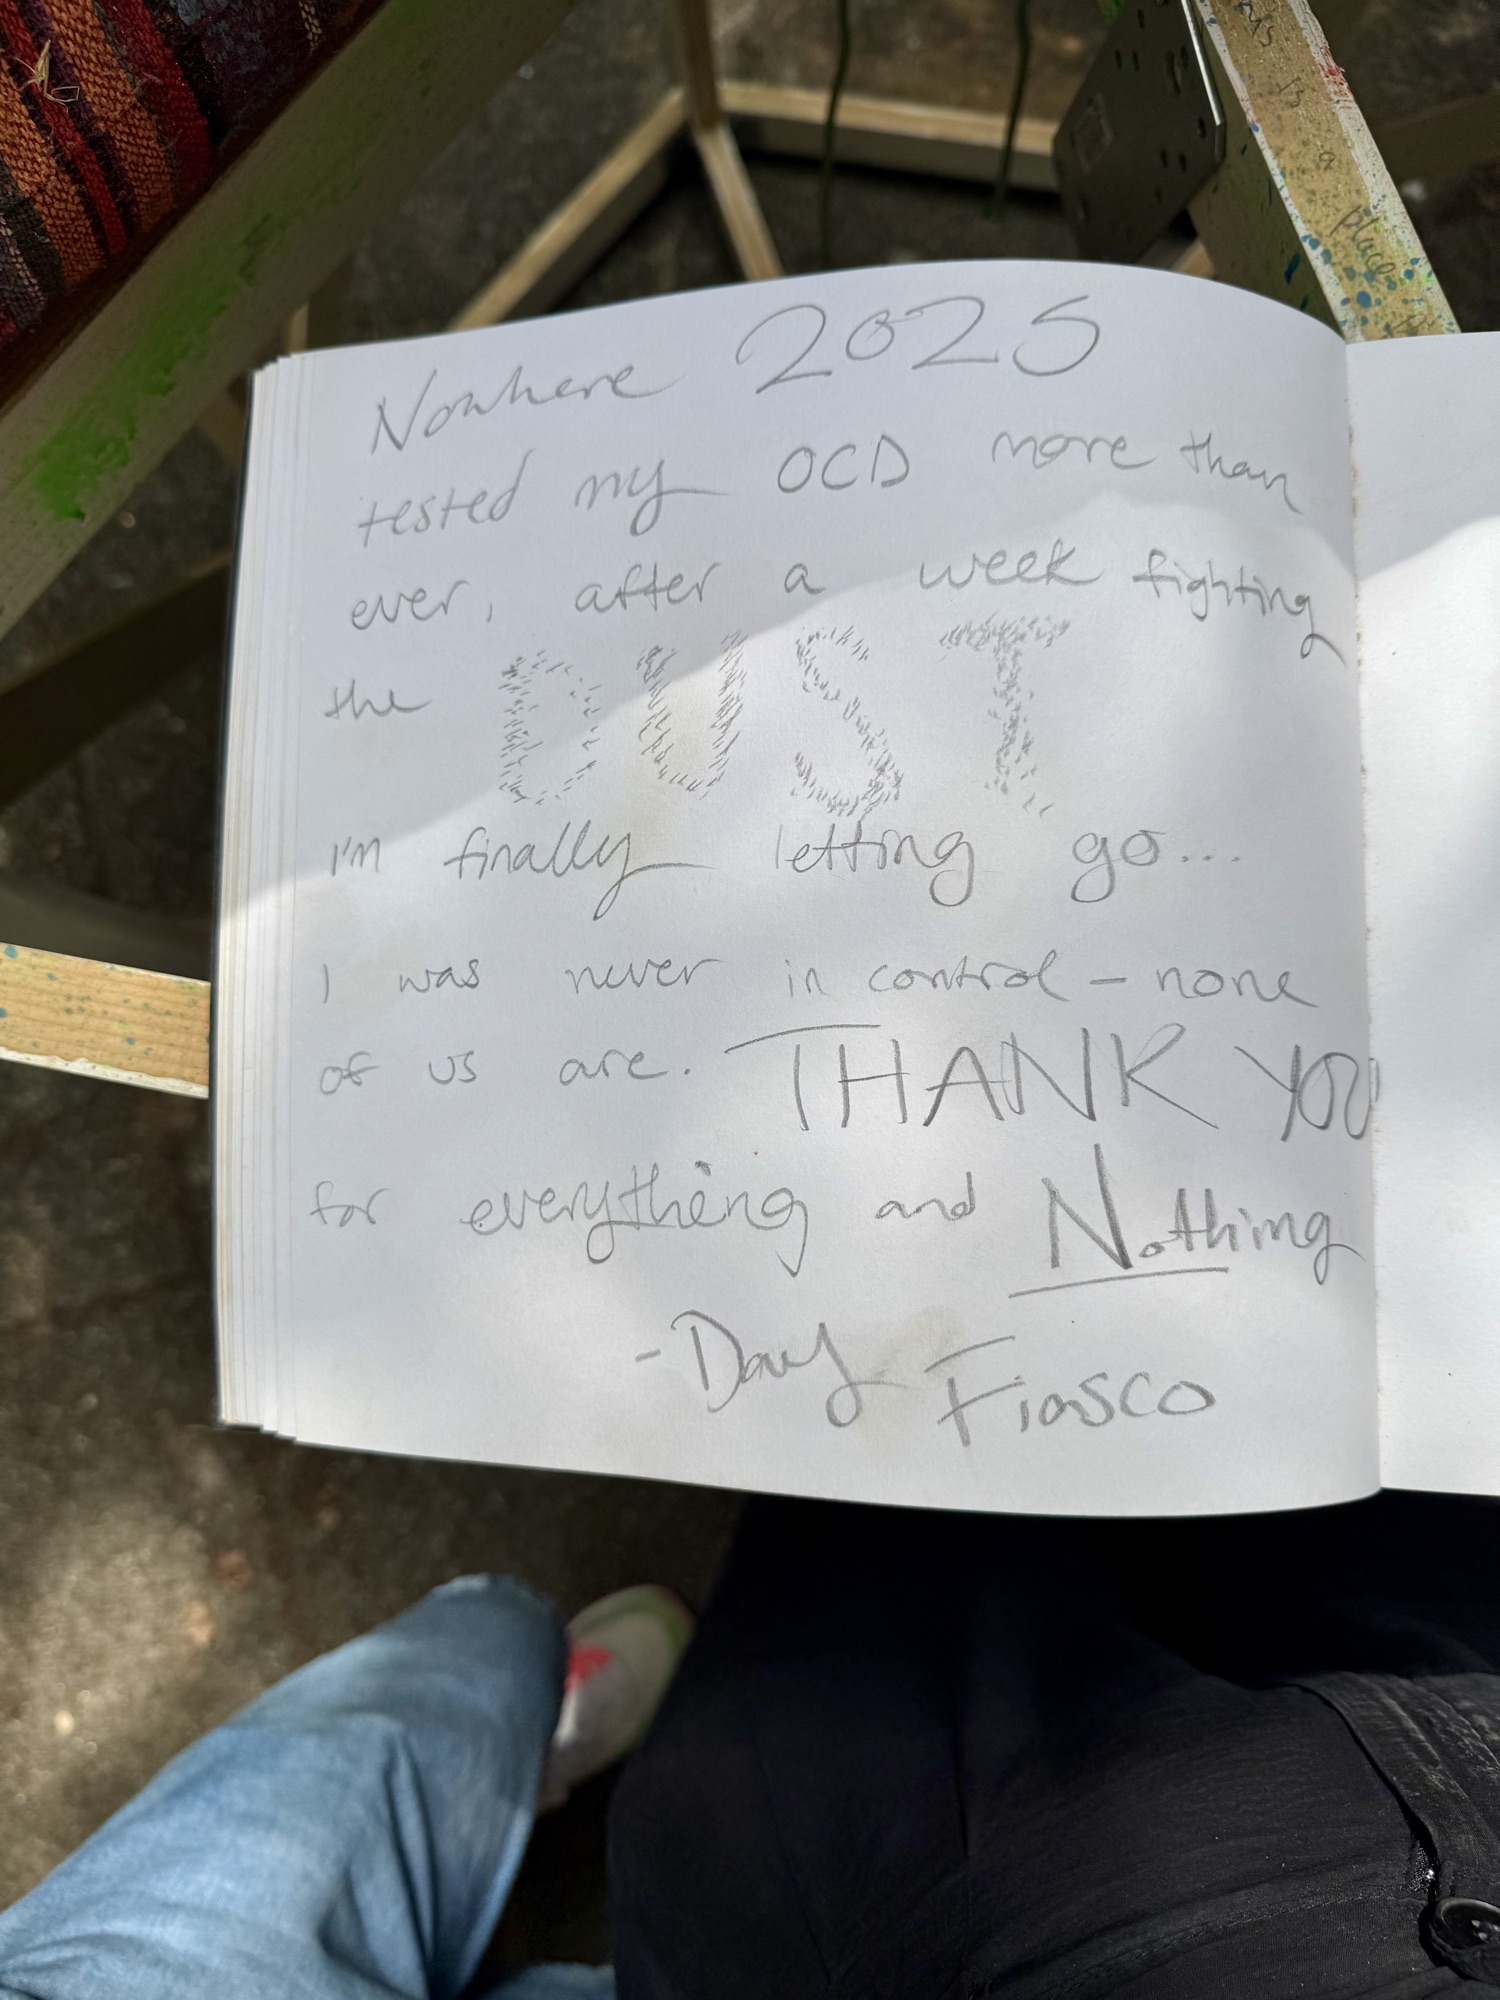 Nowhere 2025
tested my OCD more than
ever, after a week fighting
the DUST
I'm finally letting go...
I was never in control - none
of us are. THANK YOU
for everything and Nothing
- Davy Fiasco
place